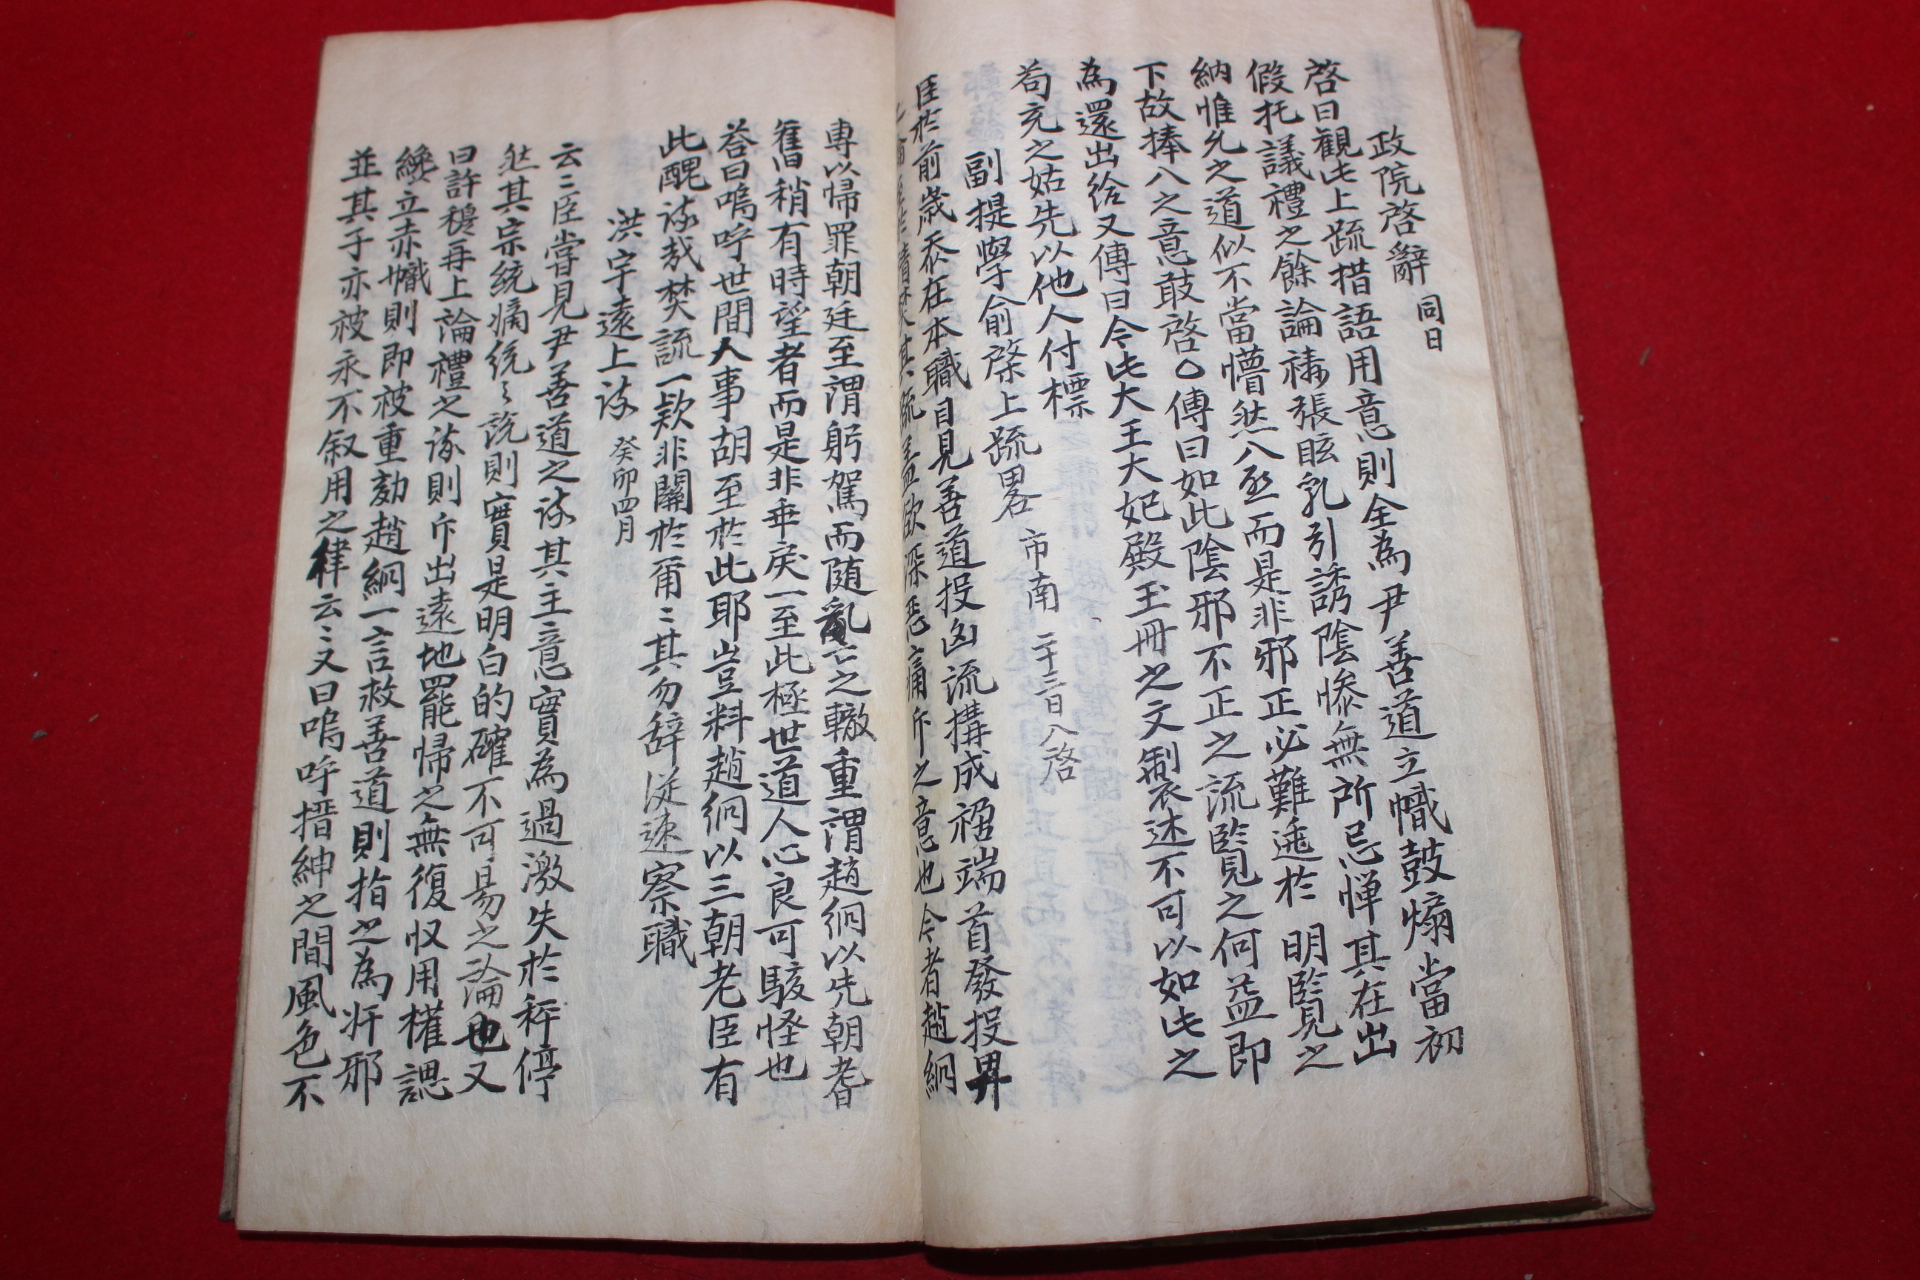 政院啓辭 同日
啓曰觀此上疏措語用意則全為尹善道立幟鼓煽當初
假托議禮之餘論譸張眩乱引誘陰慘無所忌惮其在出
納惟允之道似不當懵然入啓而是非邪正必難逃於 明監見之
下故捧入之意敢啓〇傳曰如此陰邪不正之流監見之何益即
為還出給又傳曰今此大王大妃殿玉冊之文製述不可以如此之
苟充之姑先以他人付標
副提學俞棨上疏畧 市南 二十三日入啓
臣於前歲忝在本職目見善道投凶流構成禍端首發投畀
之論 其疏盖欲深惡痛斥之意也今者趙絅
專以帰罪朝廷至謂躬駕而随亂亡之轍重謂趙絅以先朝耆
舊稍有時望者而是非乖戾一至此極世道人心良可駭怪也
荅曰嗚呼世間人事胡至於此耶豈料趙絅以三朝老臣有
此醜疏哉焚疏一欵非關於爾〻其勿辞從速察職
洪宇遠上疏 癸卯四月
云〻臣嘗見尹善道之疏其主意實為過激失於秤停
然其宗統嫡統之說則實是明白的確不可易之論也又
曰許穆再上論禮之疏則斥出遠地罷帰之無復収用權諰
纔立赤幟則即被重劾趙絅一言救善道則指之為奸邪
並其子亦被永不叙用之律云〻又曰嗚呼搢紳之間風色不